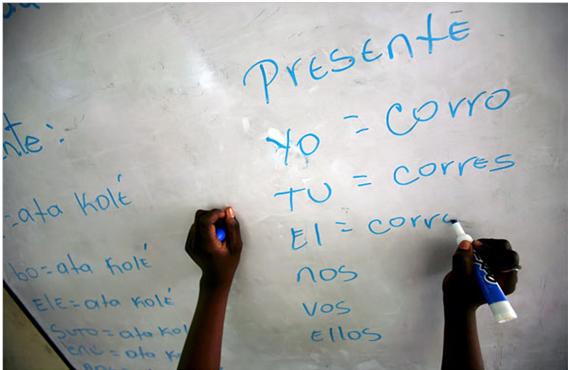 nte:
=ata kolé
bo=ata kolé
ELE=ata kolé
SUTO=ata kol
ENU=ata k
PRESENTE
YO = corro
TU = corres
El = corr
nos
vos
Ellos